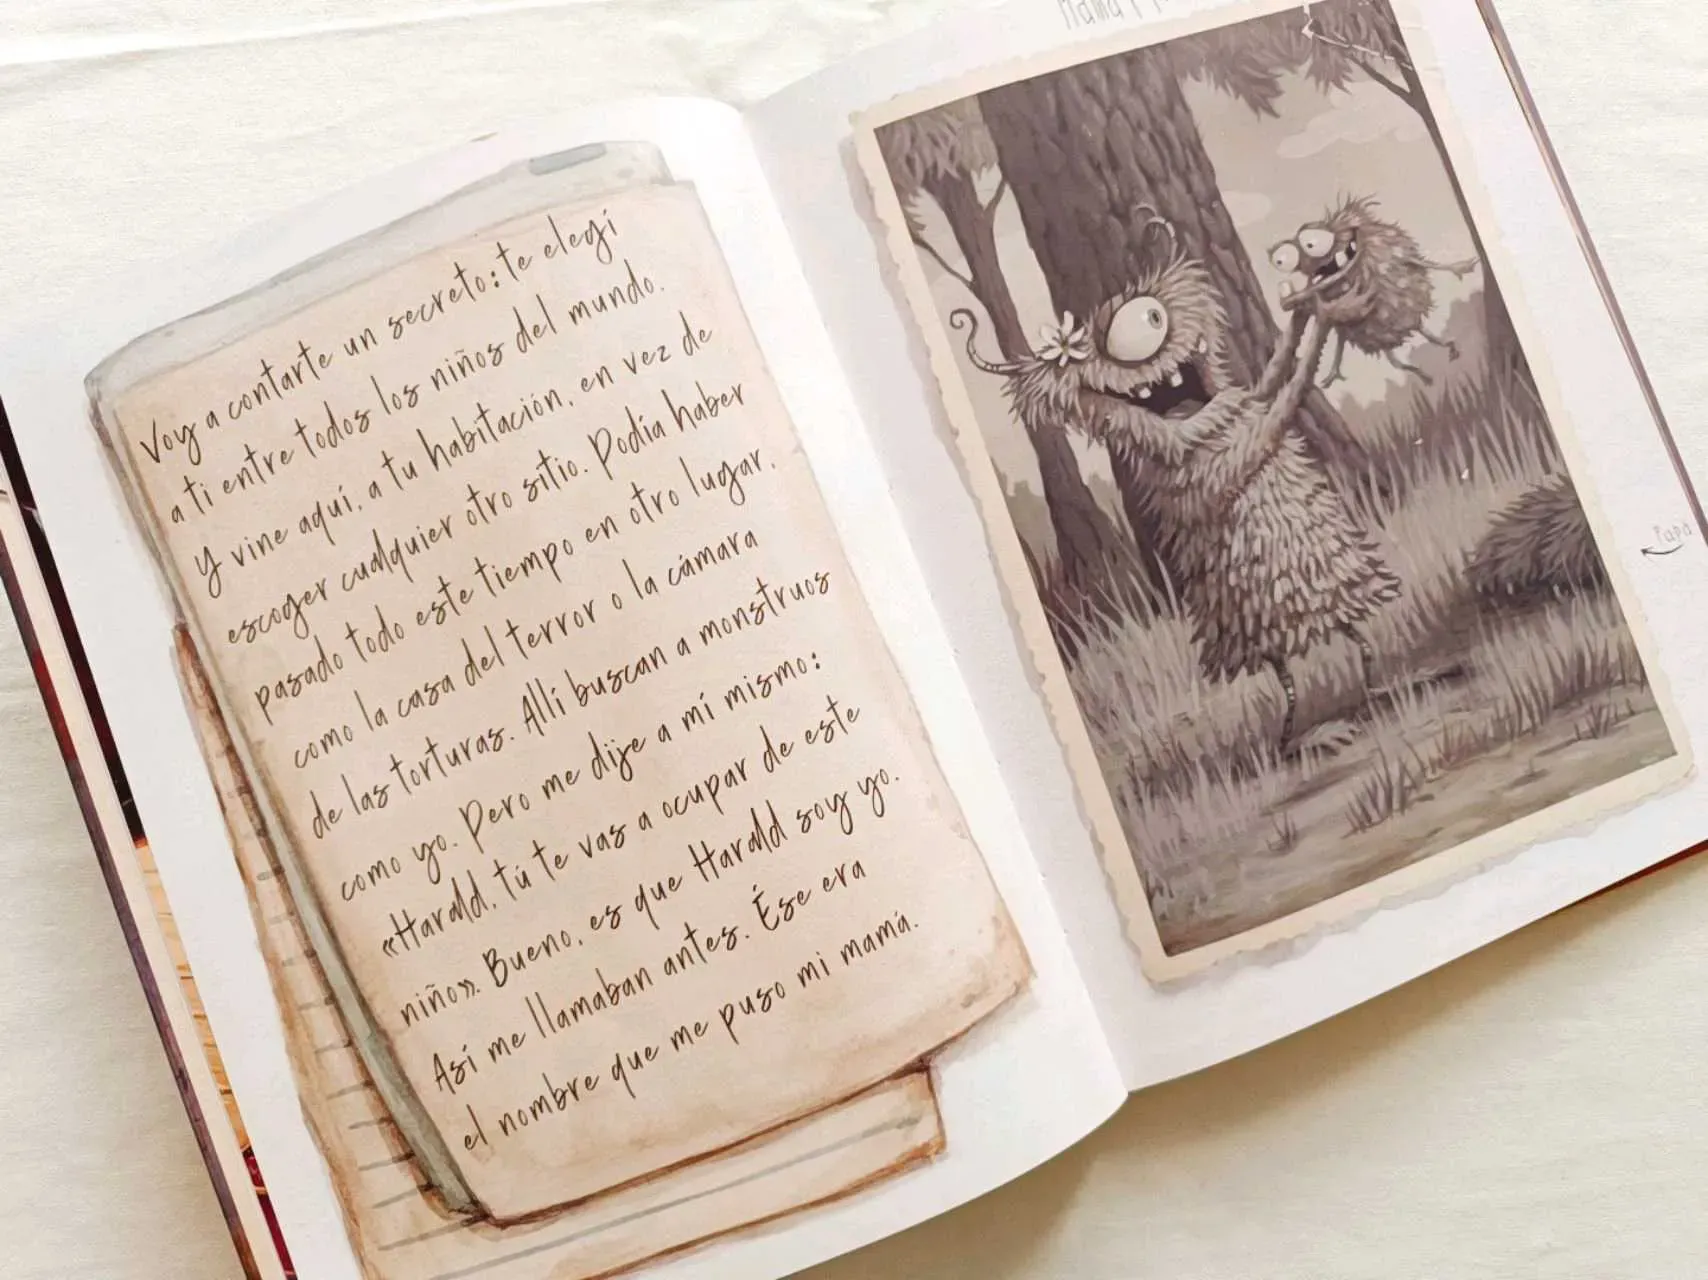 Voy a contarte un secreto: te elegí
a ti entre todos los niños del mundo.
Y vine aquí, a tu habitación, en vez de
escoger cualquier otro sitio. Podía haber
pasado todo este tiempo en otro lugar,
como la casa del terror o la cámara
de las torturas. Allí buscan a monstruos
como yo. Pero me dije a mí mismo:
«Harald, tú te vas a ocupar de este
niño». Bueno, es que Harald soy yo.
Así me llamaban antes. Ése era
el nombre que me puso mi mamá.
Mamá
Papá